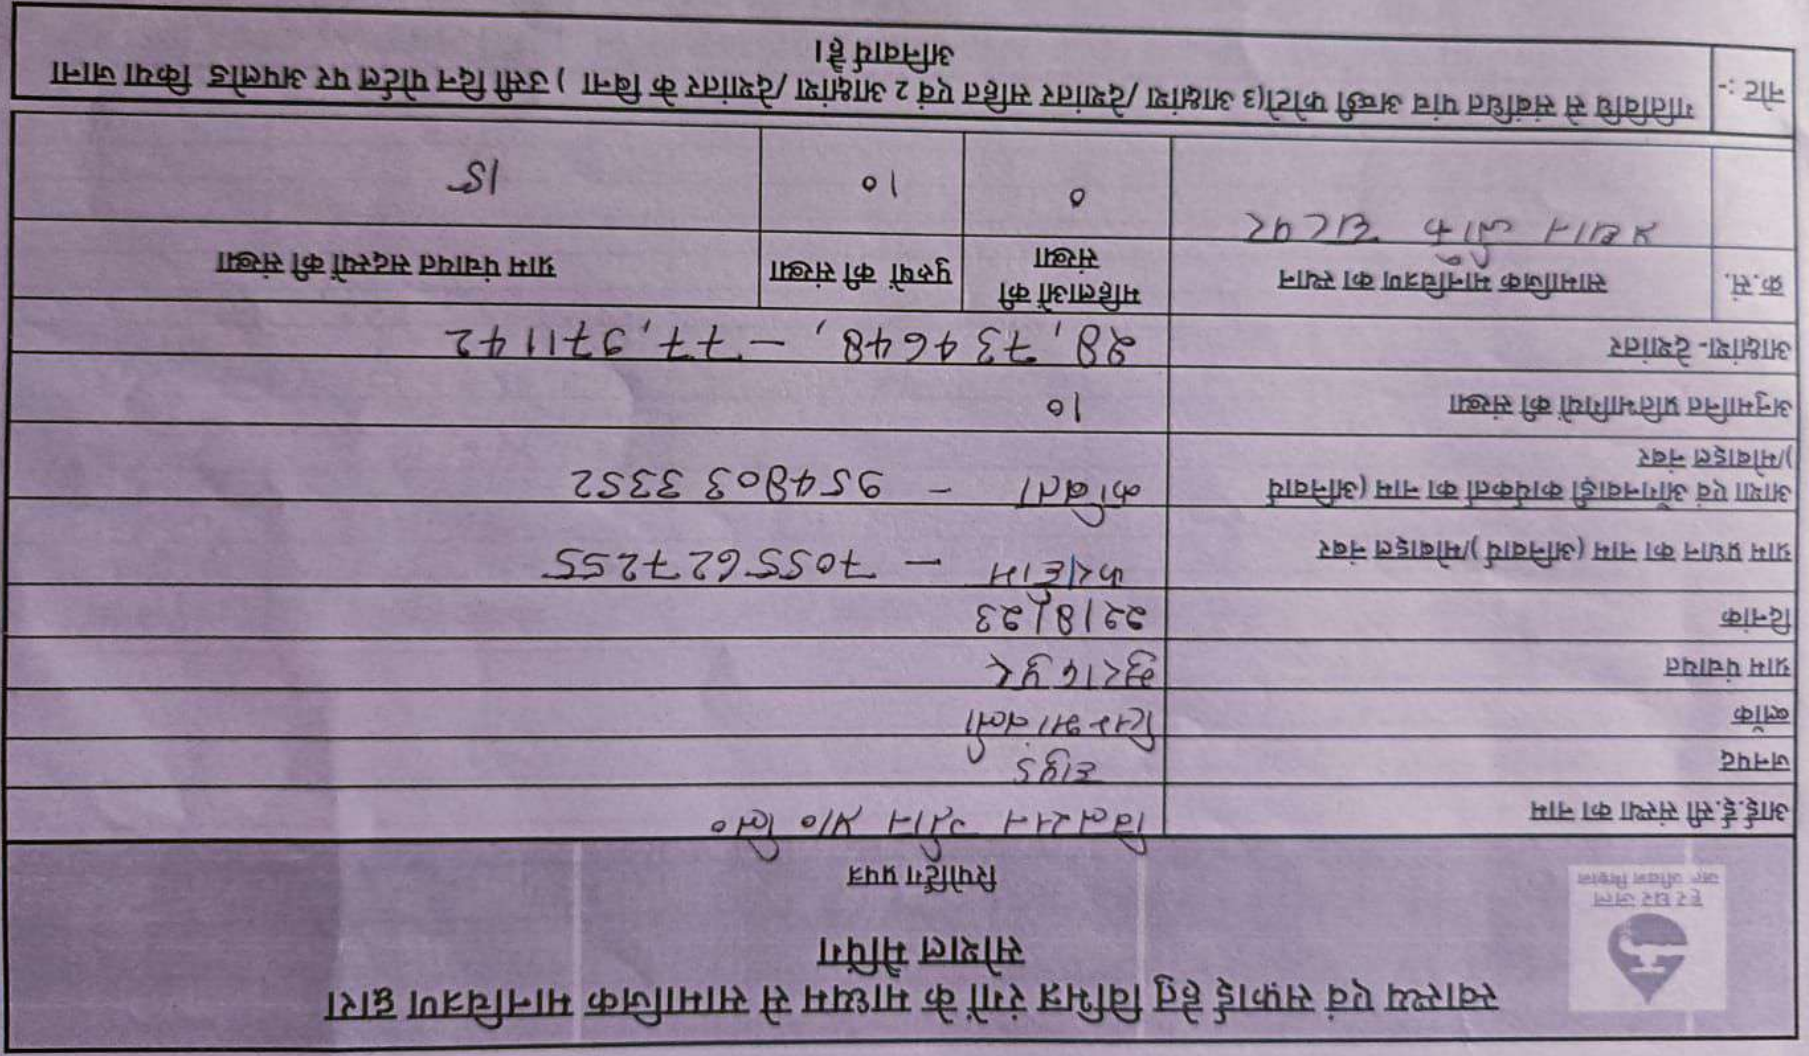 हर घर जल
जल जीवन मिशन
स्वास्थ्य एवं सफाई हेतु विभिन्न रंगों के माध्यम से सामाजिक मानचित्रण द्वारा
सोशल मैपिंग
रिपोर्टिंग प्रपत्र
आई.ई.सी संस्था का नाम प्रा० लि०
जनपद हापुड
ब्लॉक सिम्भावली
ग्राम पंचायत
दिनांक 22/8/23
ग्राम प्रधान का नाम (अनिवार्य)/मोबाइल नंबर - 7055627255
आशा एवं आँगनवाड़ी कार्यकर्ता का नाम (अनिवार्य कविता - 9548033352
)/मोबाइल नंबर
अनुमानित प्रतिभागियों की संख्या 10
आक्षांश- देशांतर 28,734648, - 77,971142
क्र.सं. सामाजिक मानचित्रण का स्थान महिलाओं की संख्या पुरुषों की संख्या ग्राम पंचायत सदस्यों की संख्या
प्रधान जी के घर पर 0 10 15
नोट :- गतिविधि से संबंधित पांच अच्छी फोटो(3 आक्षांश /देशांतर सहित एवं 2 आक्षांश /देशांतर के बिना ) उसी दिन पोर्टल पर अपलोड किया जाना
अनिवार्य है।